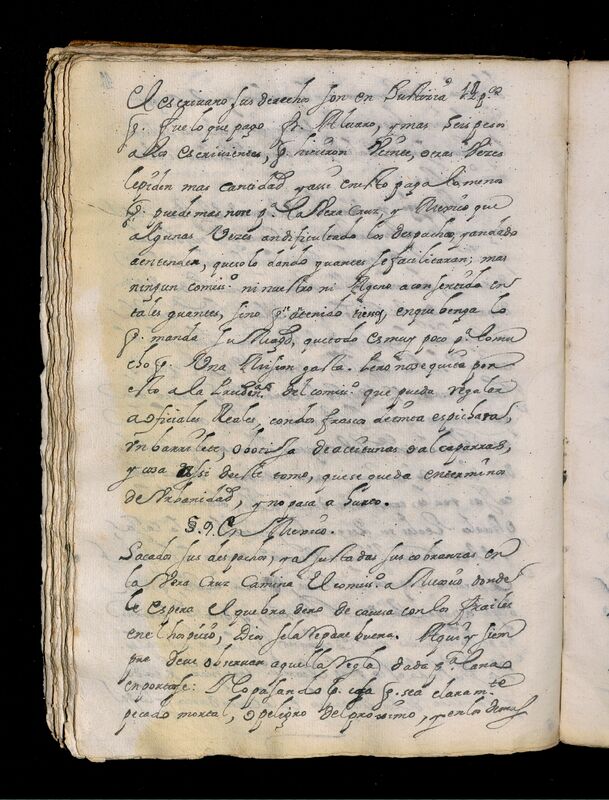 El escrivano sus derechos son en
q. fue lo que pago Fr. Alvaro, y mas seis pesos
a los escrivientes, q. hicieron otras vezes
le piden mas cantidad y assi en esto paga lo menos
q. puede mas note q. la Vera Cruz, y Mexico que
algunas vezes an dificultado los despachos, y an dado
a entender, que solo dando guantes se facilitaran; mas
ningun comis.o ni nuestro ni ageno a consentido en
tales guantes, sino q. a tenido en que benga lo
q. manda su Magd, que todo es muy poco p.a lo mu
cho q. Una Mision gasta. Pero no se quita por
esto a la Prudenª. del comis.o que pueda regalar
a oficiales Reales con dos frascos de
un barrilete, o botija de aceitunas o alcaparras,
y cosa assi de este tomo, que se queda en terminos
de Urbanidad, y no pasa a
§. 9. En Mexico.
Sacados sus despachos, y ajustadas sus cobranzas en
la Vera Cruz Camina El comis.o a Mexico donde
le espera el quebradero de caveza con los frailes
en el hospicio, Dios se la depare buena. Aqui y siem
pre deve observar aquella regla dada p.a
en portarse: No pasando p. cosa q. sea claram.te
pecado mortal, o peligro del proximo, y en los demas